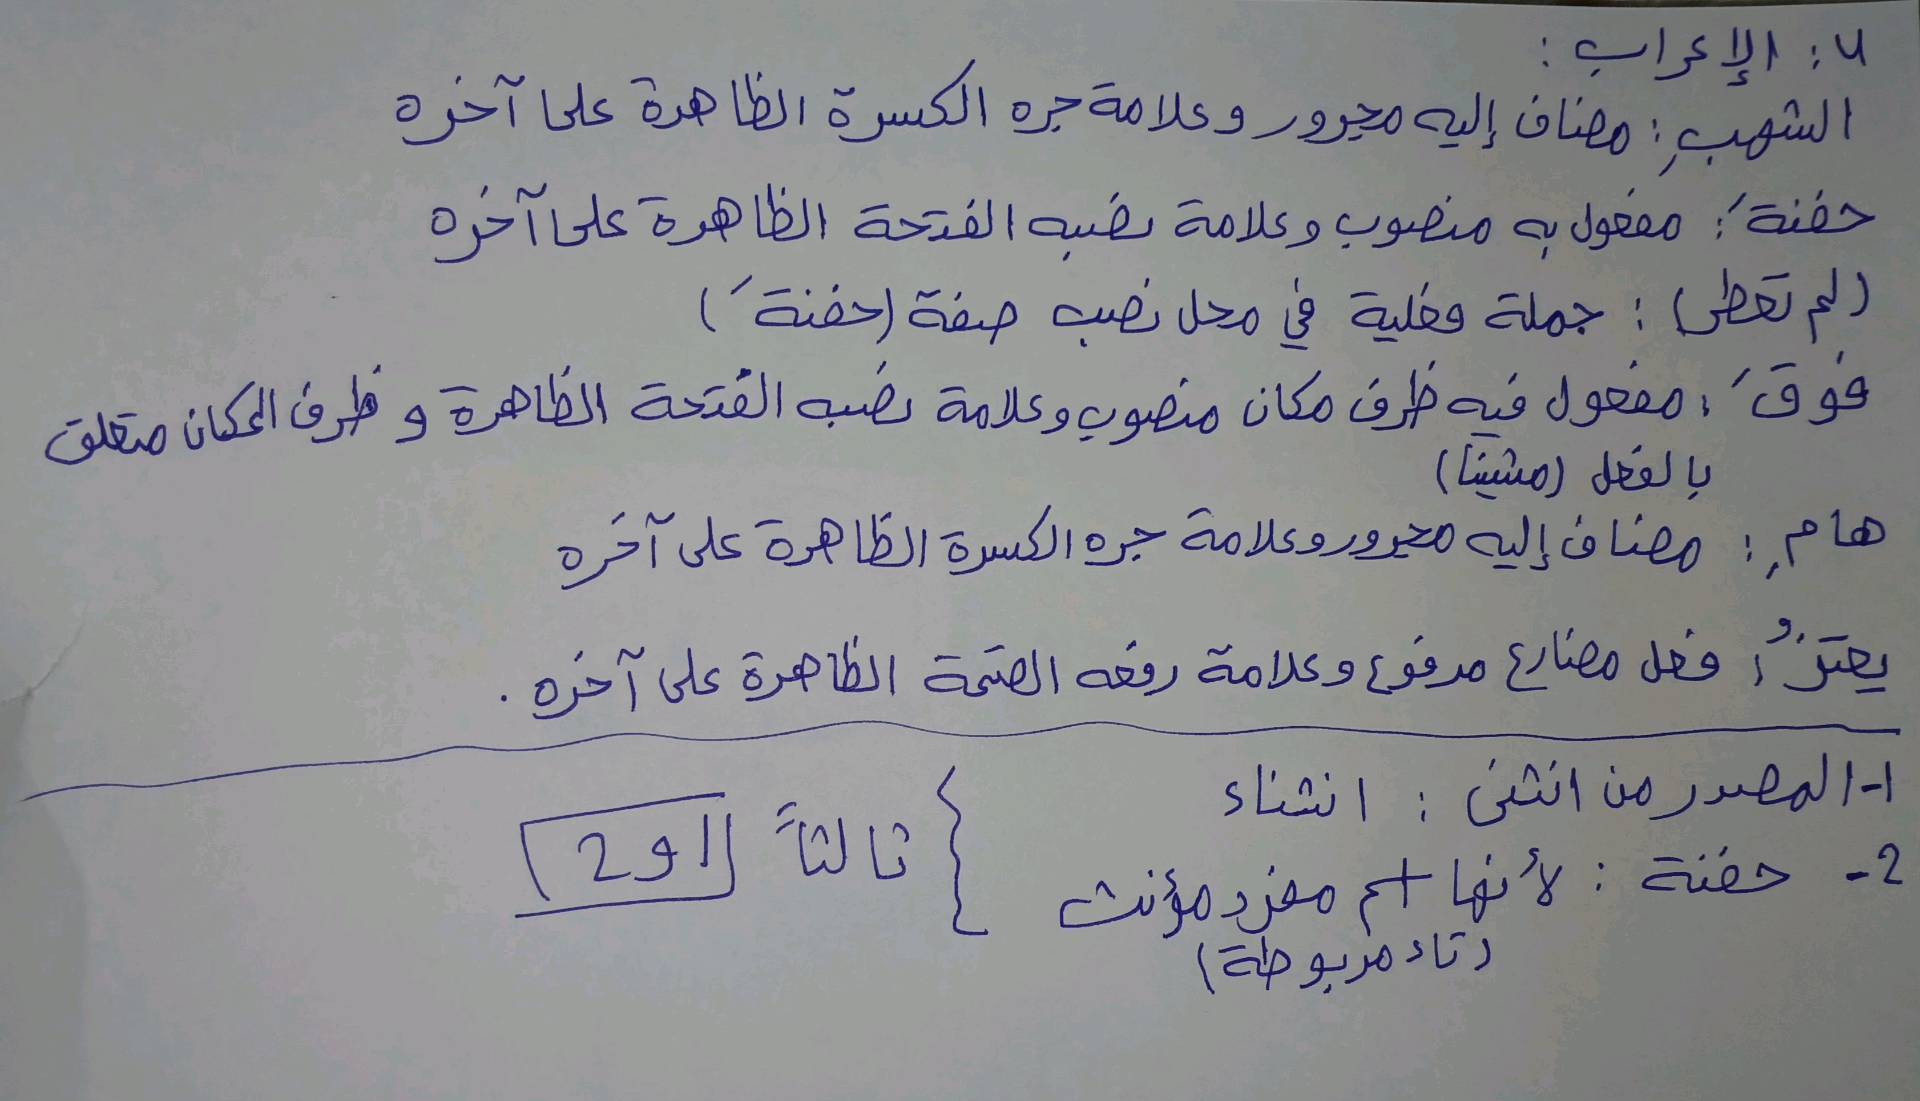 ٤: الإعراب:
الشهبِ: مضاف إليه مجرور وعلامة جره الكسرة الظاهرة على آخره
حفنةَ: مفعول به منصوب وعلامة نصبه الفتحة الظاهرة على آخره
(لم تعطَ): جملة فعلية في محل نصب صفة (حفنةَ)
فوقَ: مفعول فيه ظرف مكان منصوب وعلامة نصبه الفتحة الظاهرة و ظرف المكان متعلق
بالفعل (مشينا)
هامِ: مضاف إليه مجرور وعلامة جره الكسرة الظاهرة على آخره
يعتزُّ: فعل مضارع مرفوع وعلامة رفعه الضمة الظاهرة على آخره.
1- المصدر من انثنى: انثناء
2- حفنة: لأنها اسم مفرد مؤنث
(تاء مربوطة)
ثالثاً 1 و 2